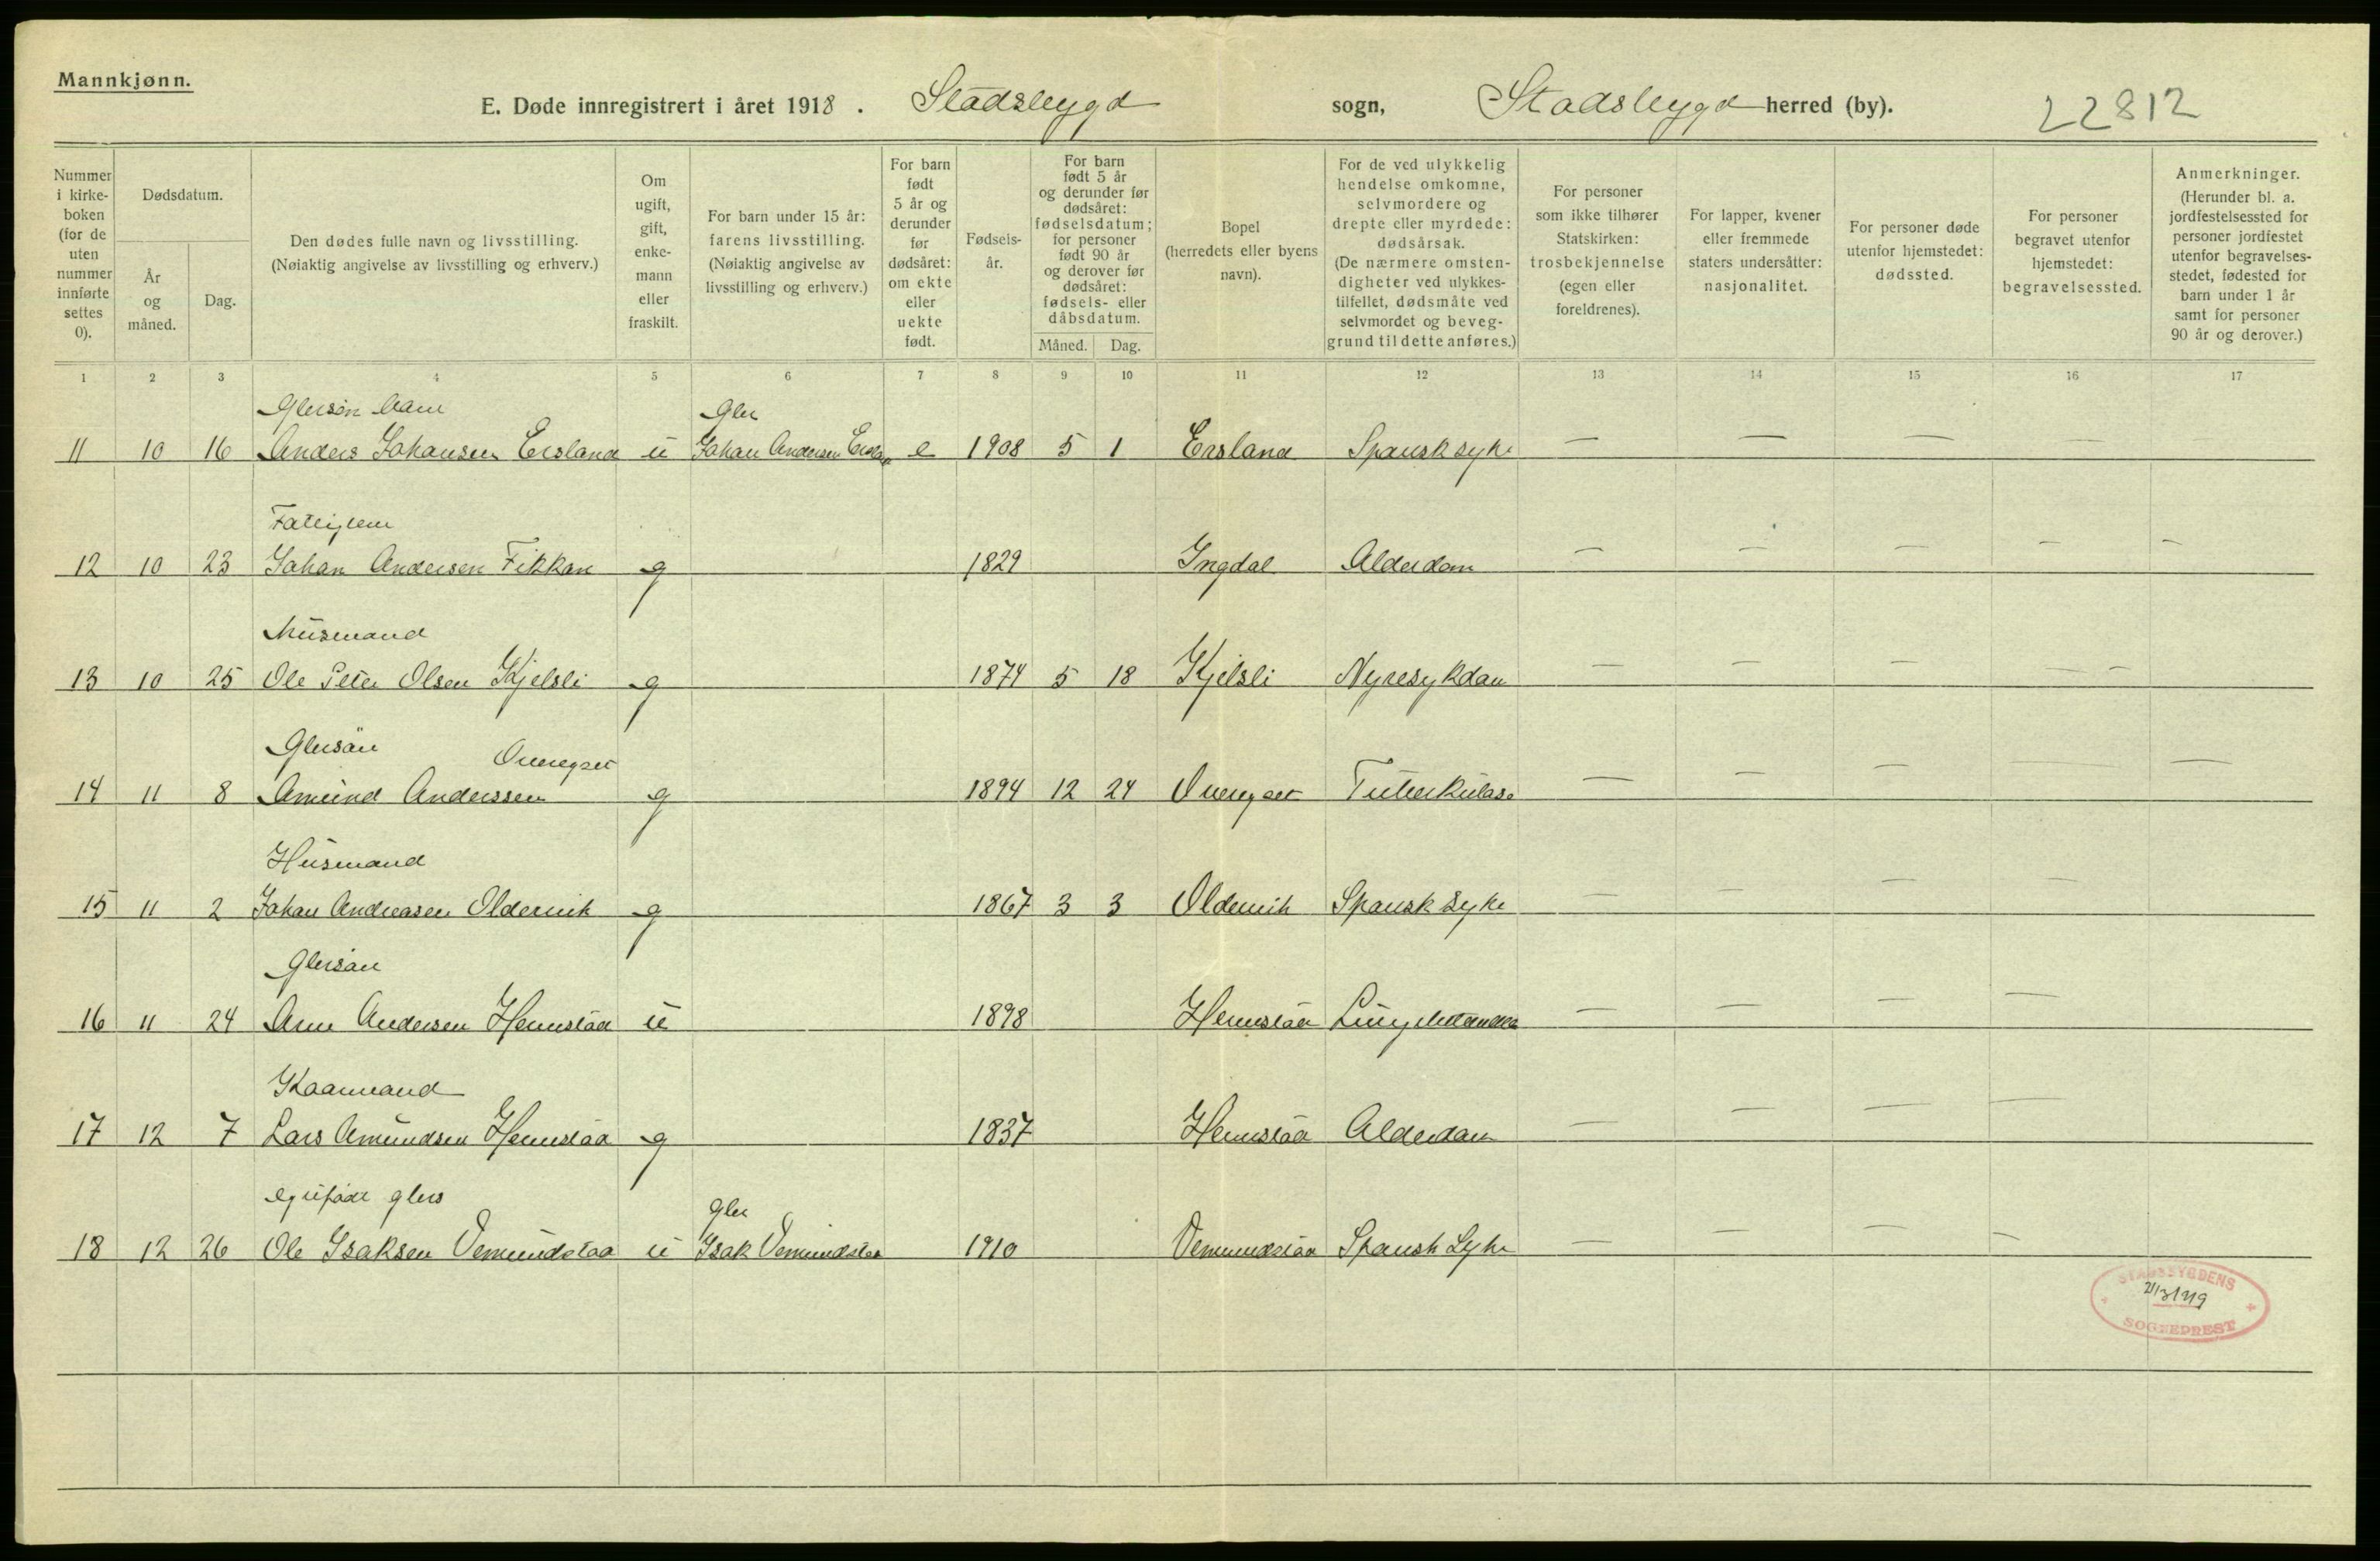 Mannkjønn.
E. Døde innregistrert i året 1918. Stadsbygd sogn, Stadsbygd herred (by). 22812
Nummer i kirkeboken (for de uten nummer innførte settes 0).
Dødsdatum.
År og måned.
Dag.
Den dødes fulle navn og livsstilling.
(Nøiaktig angivelse av livsstilling og erhverv.)
Om ugift, gift, enkemann eller fraskilt.
For barn under 15 år: farens livsstilling.
(Nøiaktig angivelse av livsstilling og erhverv.)
For barn født 5 år og derunder før dødsåret: om ekte eller uekte født.
Fødselsår.
For barn født 5 år og derunder før dødsåret: fødselsdatum; for personer født 90 år og derover før dødsåret: fødsels- eller dåbsdatum.
Måned. Dag.
Bopel (herredets eller byens navn).
For de ved ulykkelig hendelse omkomne, selvmordere og drepte eller myrdede: dødsårsak.
(De nærmere omstendigheter ved ulykkestilfellet, dødsmåte ved selvmordet og beveggrund til dette anføres.)
For personer som ikke tilhører Statskirken: trosbekjennelse (egen eller foreldrenes).
For lapper, kvener eller fremmede staters undersåtter: nasjonalitet.
For personer døde utenfor hjemstedet: dødssted.
For personer begravet utenfor hjemstedet: begravelsessted.
Anmerkninger.
(Herunder bl. a. jordfestelsessted for personer jordfestet utenfor begravelsesstedet, fødested for barn under 1 år samt for personer 90 år og derover.)
1 2 3 4 5 6 7 8 9 10 11 12 13 14 15 16 17
Gbrsøn barn Gbr
11 10 16 Anders Johansen Ersland u Johan Andersen Ersland e 1908 5 1 Ersland Spansksyke — — — —
Fattiglem
12 10 23 Johan Andersen Fikkan g 1829 Ingdal Alderdom — — — — —
Husmand
13 10 25 Ole Peter Olsen Kjelsli g 1874 5 18 Kjelsli Nyresykdom — — — — —
Gbrsøn
14 11 8 Amund Anderssen g 1894 12 24 Tuberkulose — — — — —
Husmand
15 11 2 Johan Andreasen Oldervik g 1867 3 3 Oldervik Spansk Syke — — — —
Gbrsøn
16 11 24 Arne Andersen Hermstad u 1898 Hermstad Lungebetændelse — — — —
Kaarmand
17 12 7 Lars Amundsen Hermstad g 1837 Hermstad Alderdom — — — —
gbrs Gbr
18 12 26 Ole Isaksen Vemundstad u Isak Vemundstad 1910 Vemundstad Spansk Syke — — — —
STADSBYGDENS
21/3 1919
SOGNEPREST